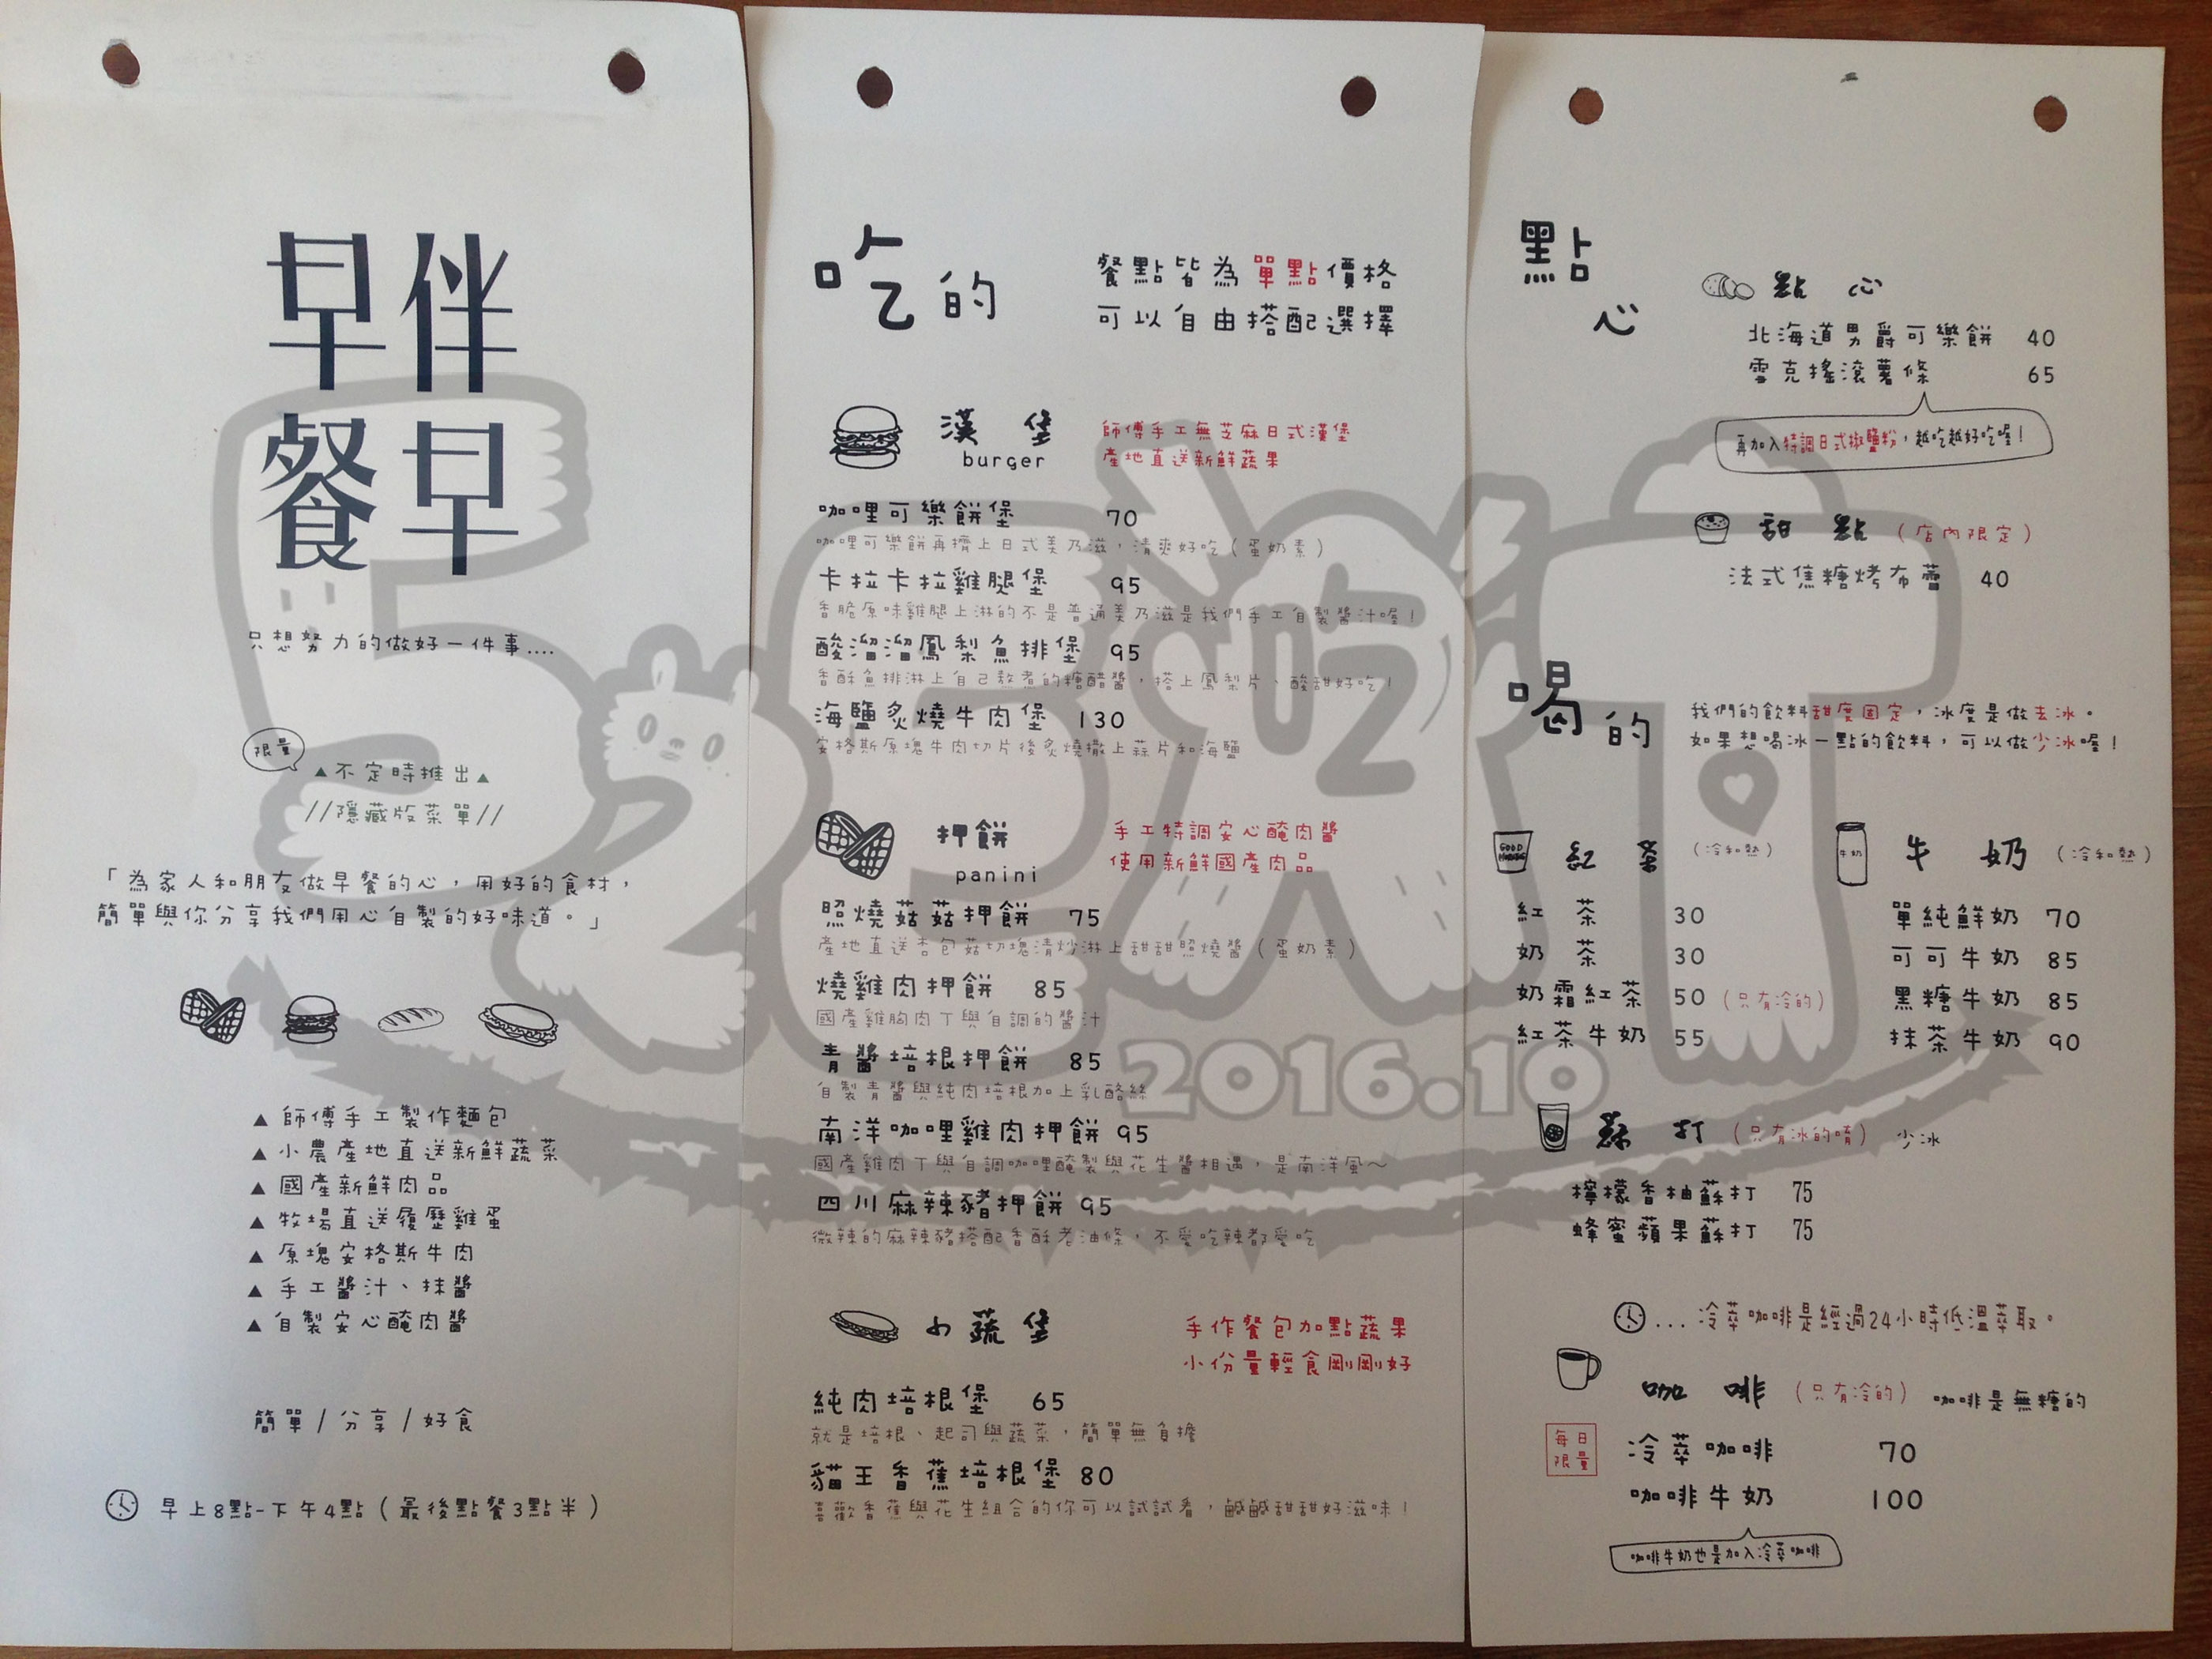 早伴
餐早
只想努力的做好一件事....
限量
▲不定時推出▲
//隱藏版菜單//
「為家人和朋友做早餐的心，用好的食材，
簡單與你分享我們用心自製的好味道。」
▲ 師傅手工製作麵包
▲ 小農產地直送新鮮蔬菜
▲ 國產新鮮肉品
▲ 牧場直送履歷雞蛋
▲ 原塊安格斯牛肉
▲ 手工醬汁、抹醬
▲ 自製安心醃肉醬
簡單/分享/好食
早上8點-下午4點(最後點餐3點半)
吃的
餐點皆為單點價格
可以自由搭配選擇
漢堡
burger
師傅手工無芝麻日式漢堡
產地直送新鮮蔬果
咖哩可樂餅堡 70
咖哩可樂餅再擠上日式美乃滋，清爽好吃(蛋奶素)
卡拉卡拉雞腿堡 95
香脆原味雞腿上淋的不是普通美乃滋是我們手工自製醬汁喔！
酸溜溜鳳梨魚排堡 95
香酥魚排淋上自己熬煮的糖醋醬，搭上鳳梨片、酸甜好吃！
海鹽炙燒牛肉堡 130
安格斯原塊牛肉切片後炙燒撒上蒜片和海鹽
押餅
panini
手工特調安心醃肉醬
使用新鮮國產肉品
照燒菇菇押餅 75
產地直送杏包菇切塊清炒淋上甜甜照燒醬(蛋奶素)
燒雞肉押餅 85
國產雞胸肉丁與自調的醬汁
青醬培根押餅 85
自製青醬與純肉培根加上乳酪絲
南洋咖哩雞肉押餅 95
國產雞肉丁與自調咖哩醃製與花生醬相遇，是南洋風～
四川麻辣豬押餅 95
微辣的麻辣豬搭配香酥老油條，不愛吃辣都愛吃
小蔬堡
手作餐包加點蔬果
小份量輕食剛剛好
純肉培根堡 65
就是培根、起司與蔬菜，簡單無負擔
貓王香蕉培根堡 80
喜歡香蕉與花生組合的你可以試試看，鹹鹹甜甜好滋味！
點心
點心
北海道男爵可樂餅 40
雪克搖滾薯條 65
再加入特調日式椒鹽粉，越吃越好吃喔！
甜點(店內限定)
法式焦糖烤布蕾 40
喝的
我們的飲料甜度固定，冰度是做去冰。
如果想喝冰一點的飲料，可以做少冰喔！
GOOD MORNING
紅茶(冷和熱)
紅茶 30
奶茶 30
奶霜紅茶 50(只有冷的)
紅茶牛奶 55
牛奶
牛奶(冷和熱)
單純鮮奶 70
可可牛奶 85
黑糖牛奶 85
抹茶牛奶 90
蘇打(只有冰的唷) 少冰
檸檬香柚蘇打 75
蜂蜜蘋果蘇打 75
...冷萃咖啡是經過24小時低溫萃取。
咖啡(只有冷的) 咖啡是無糖的
每日
限量
冷萃咖啡 70
咖啡牛奶 100
咖啡牛奶也是加入冷萃咖啡
吃
2016.10